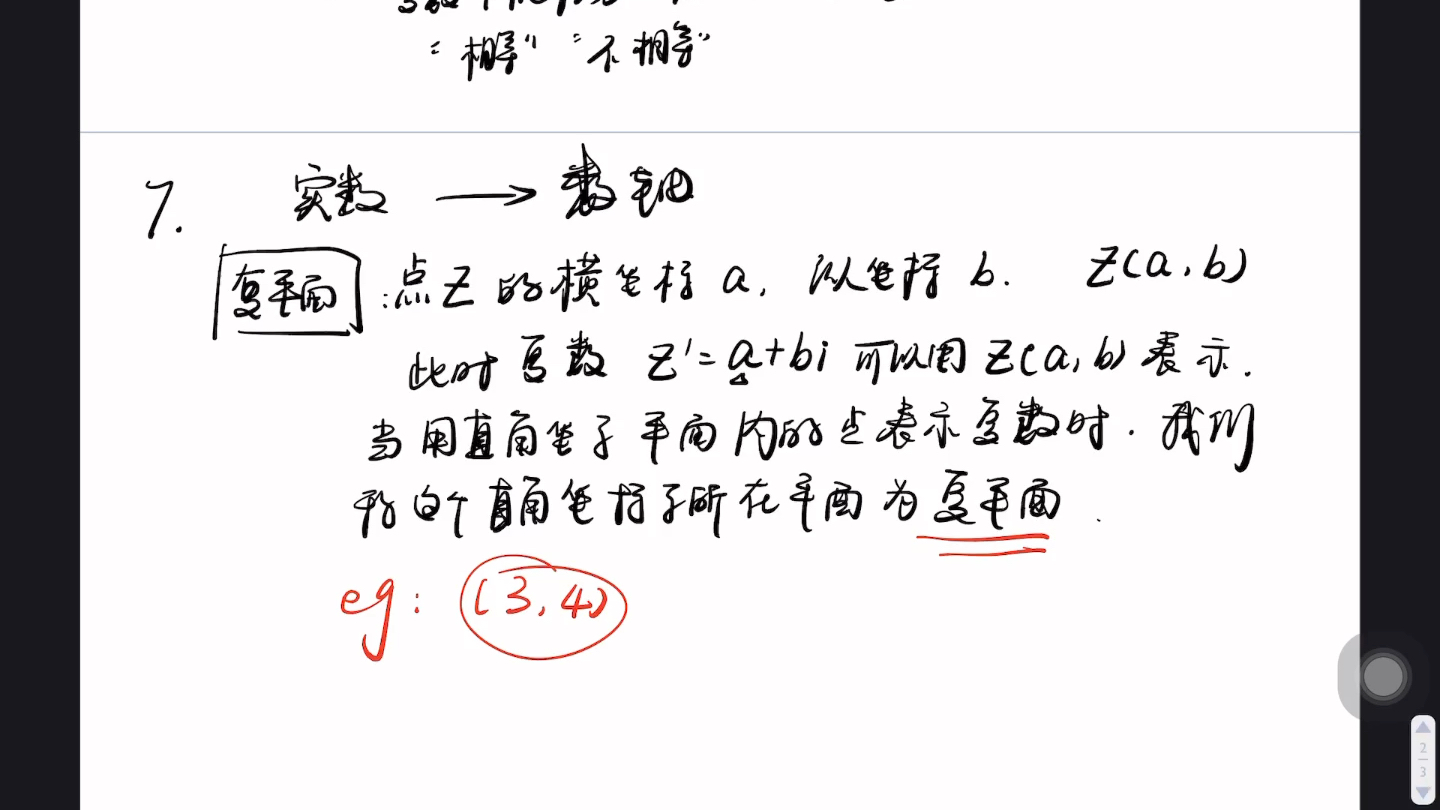 "相等" "不相等"
7. 实数 → 数轴
复平面:点Z的横坐标a, 纵坐标b. Z(a,b)
此时复数 Z'=a+bi 可以用Z(a,b)表示.
当用直角坐标平面内的点表示复数时.我们
称这个直角坐标系所在平面为复平面.
eg: (3,4)
2
3